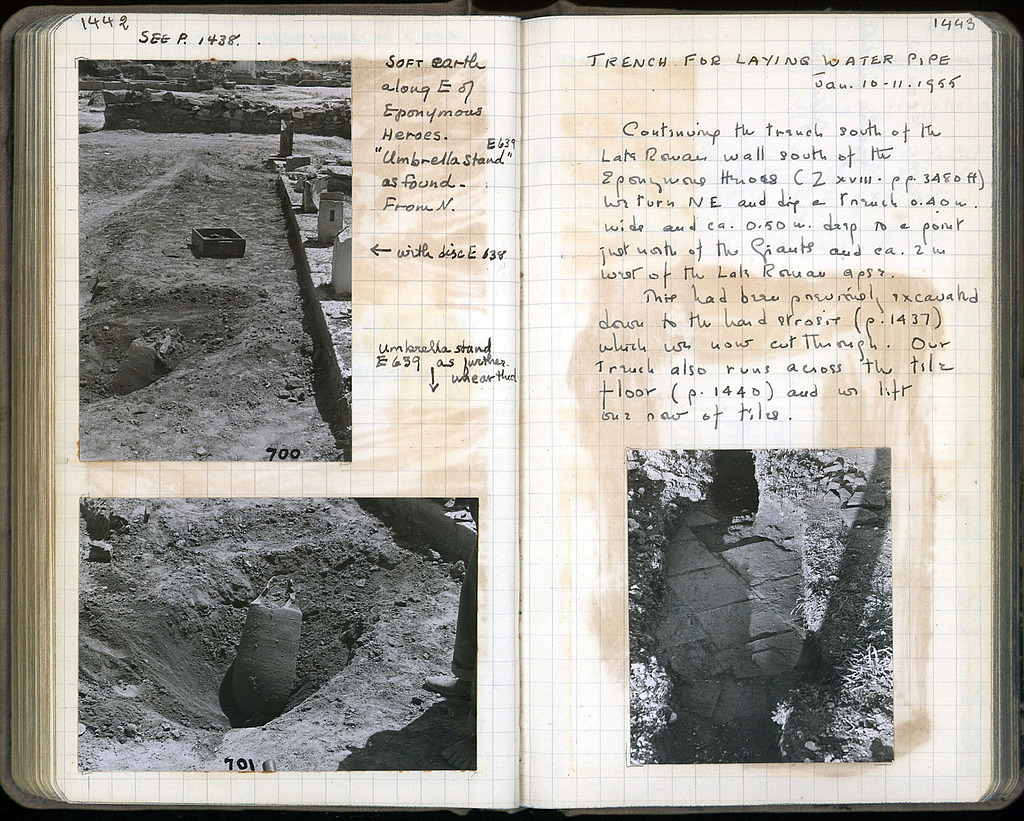 1442
SEE P. 1438.
SOFT earth
along E of
Eponymous
Heroes.
E 639
"Umbrella stand"
as found.
From N.
← with disc E 638
Umbrella stand
E 639 as further
↓ unearthed
700
701
1443
TRENCH FOR LAYING WATER PIPE
Jan. 10-11. 1955
Continuing the trench south of the
Late Roman wall south of the
Eponymous Heroes (Z xviii. pp. 3480 ff)
we turn NE and dig a trench 0.40 m.
wide and ca. 0.50 m. deep to a point
just north of the Giants and ca. 2 m
west of the Late Roman apse.
This had been previously excavated
down to the hard strosis (p. 1437)
which we now cut through. Our
trench also runs across the tile
floor (p. 1440) and we lift
one row of tiles.